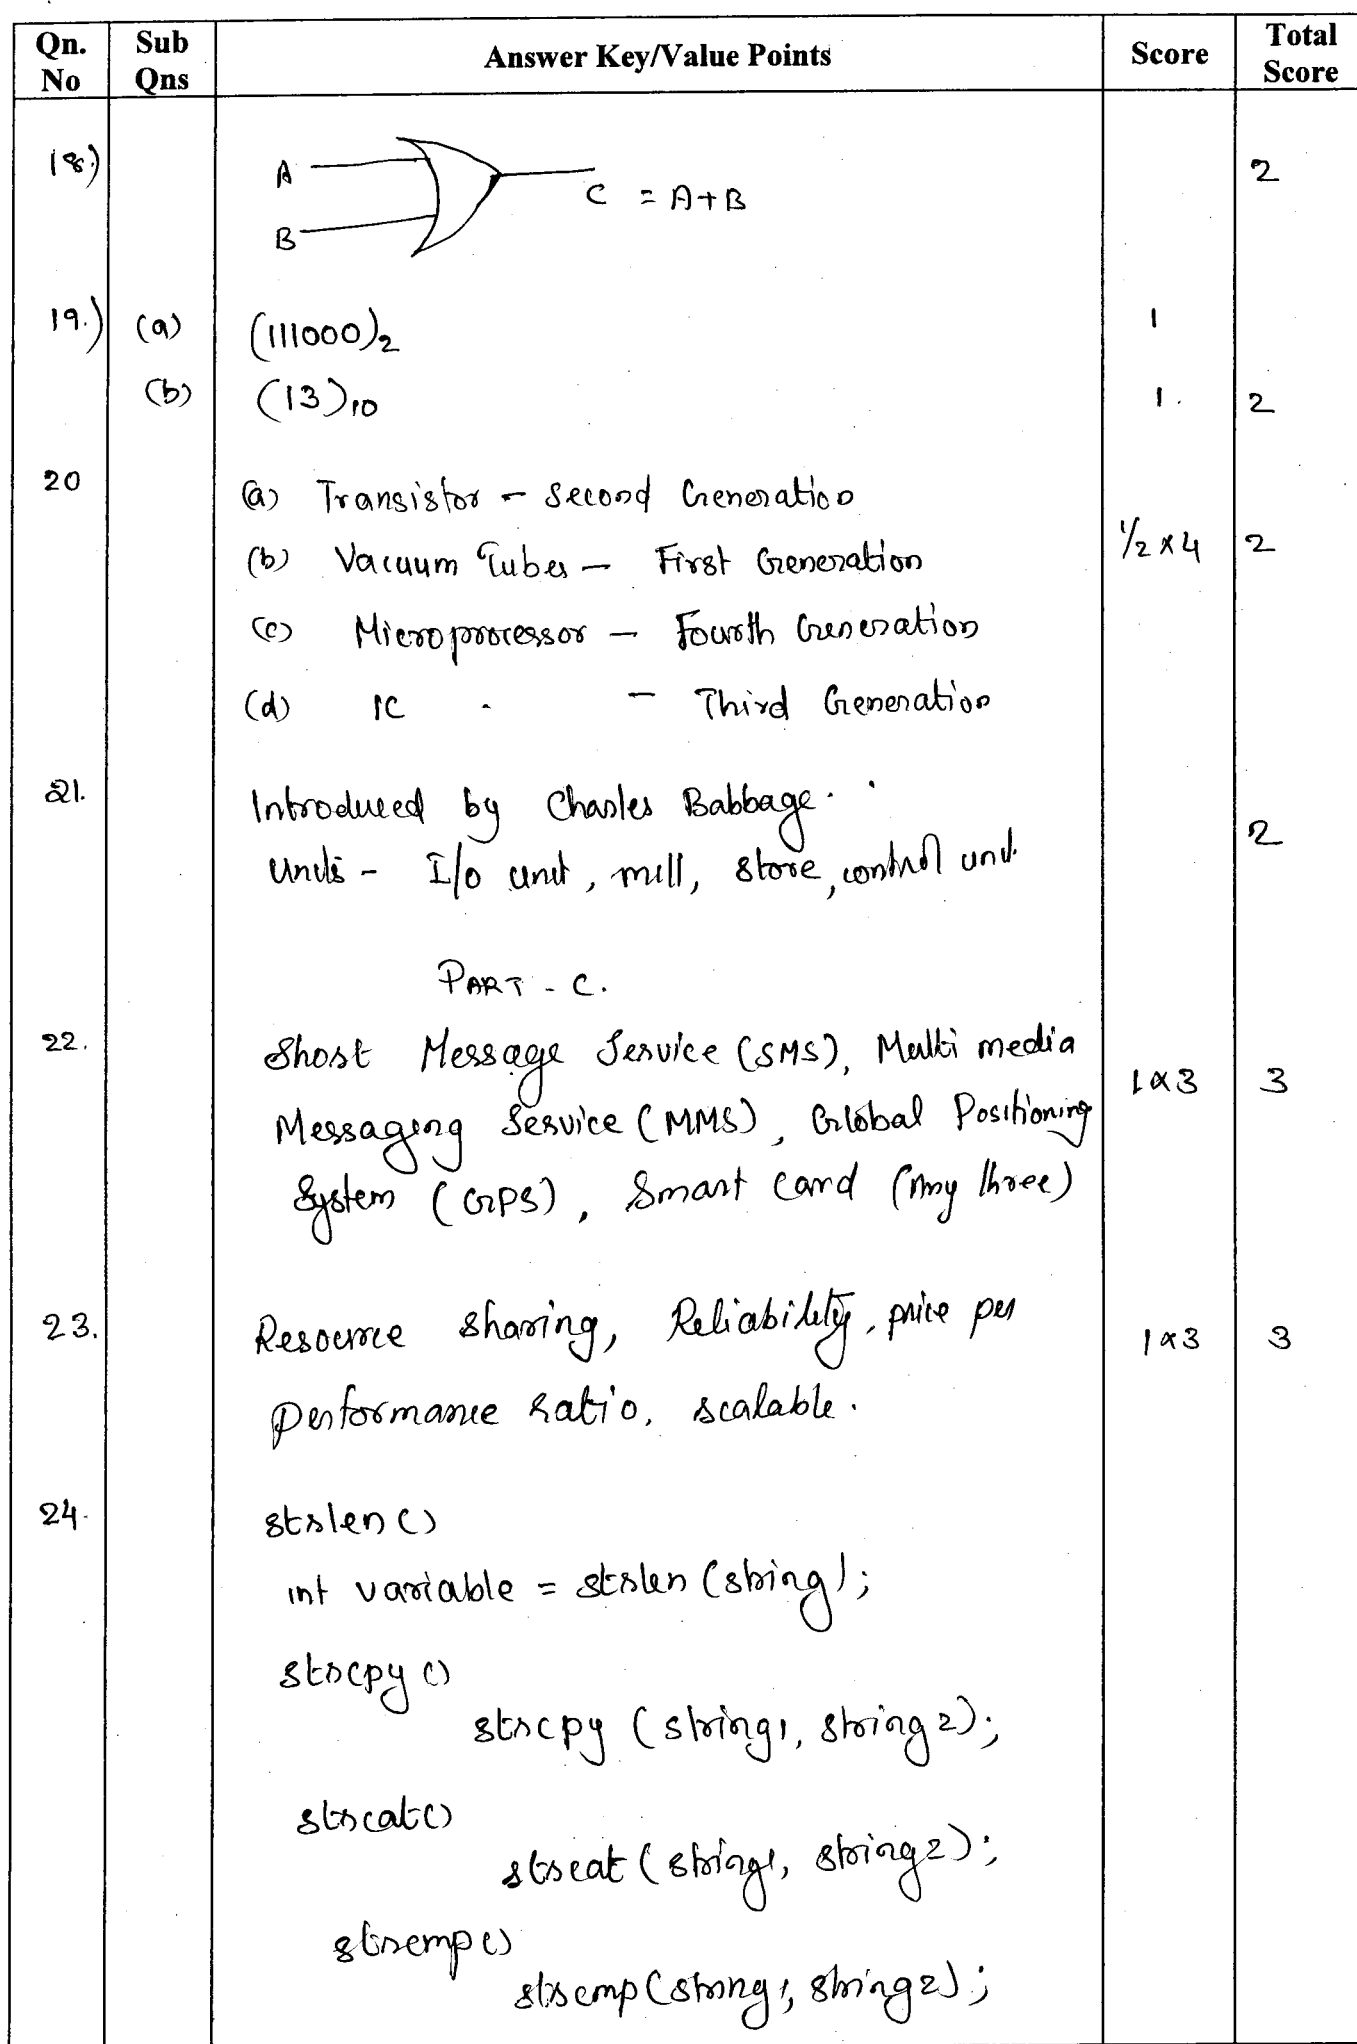 Qn. No Sub Qns Answer Key/Value Points Score Total Score
18.) A B C = A+B 2
19.) (a) (111000)2 1
(b) (13)10 1. 2
20 (a) Transistor - Second Generation
(b) Vacuum Tubes - First Generation 1/2 x 4 2
(c) Microprocessor - Fourth Generation
(d) IC - Third Generation
21. Introduced by Charles Babbage.
Units - I/o unit, mill, store, control unit. 2
PART - C.
22. Short Message Service (SMS), Multi media
Messaging Service (MMS), Global Positioning 1x3 3
System (GPS), Smart Card (Any three)
23. Resource sharing, Reliability, price per 1x3 3
performance ratio, scalable.
24. strlen()
int variable = strlen (string);
strcpy()
strcpy (string1, string2);
strcat()
strcat (string1, string2);
strcmp()
strcmp (string1, string2);